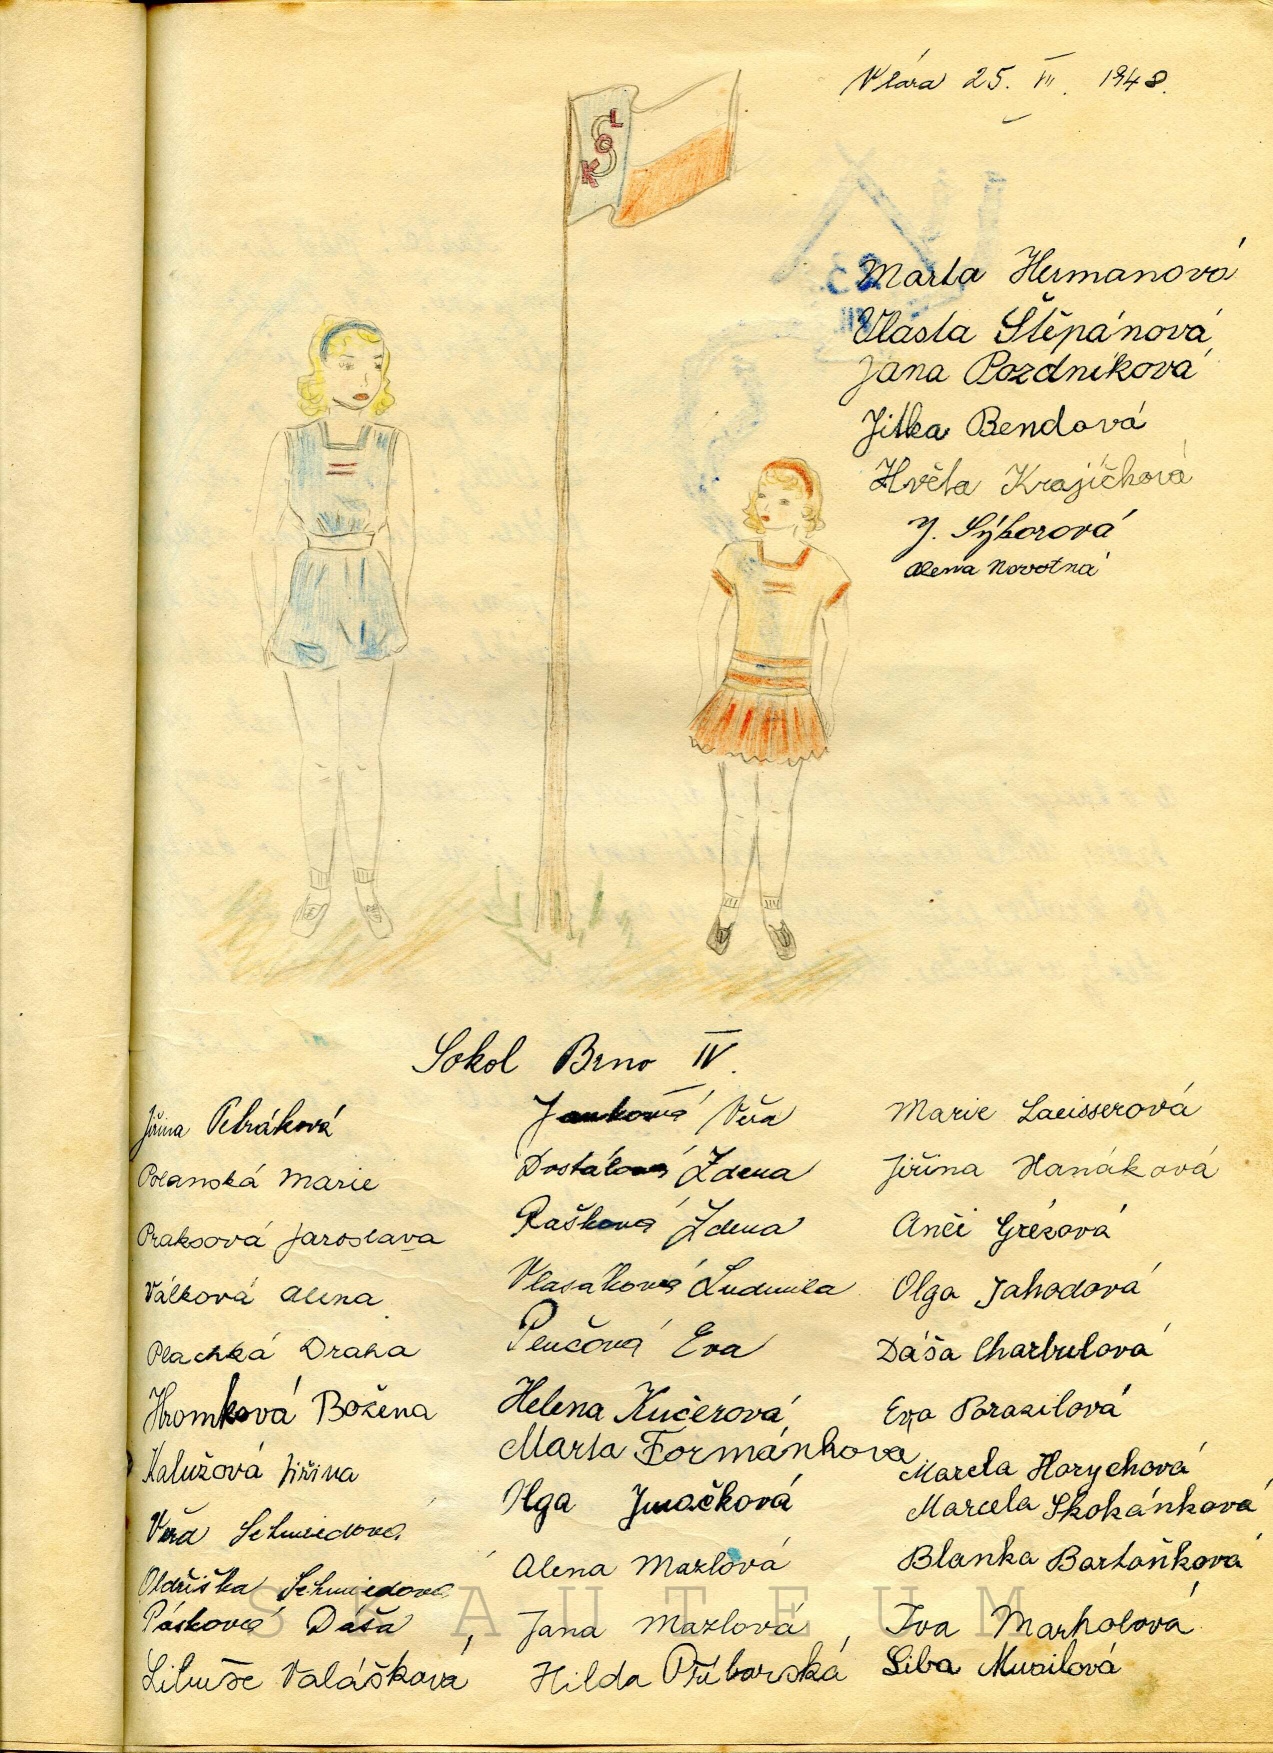 Vlára 25. VII. 1948.
SOKOL
Marta Hermanová
Vlasta Štěpánová
Jana Pozdníková
Jitka Bendová
Květa Krajíčková
J. Sýkorová
Alena Novotná
Sokol Brno IV.
Jiřina Petráková
Polanská Marie
Praksová Jaroslava
Válková Alena
Plachká Draha
Hromková Božena
Kalužová Jiřina
Věra Schmiedová
Oldřiška Schmiedová
Pásková Dáša
Libuše Valášková
Janková Věra
Dostálová Zdena
Rašková Zdena
Vlasáková Ludmila
Eva
Helena Kučerová
Marta Formánková
Olga
Alena Mazlová
Jana Mazlová
Hilda Příborská
Marie
Jiřina Hanáková
Anči Grézová
Olga Jahodová
Dáša Charbulová
Eva Porazilová
Marcela Horychová
Marcela Skokánková
Blanka Bartoňková
Iva Marholová
Liba Musilová
SKAUTEUM